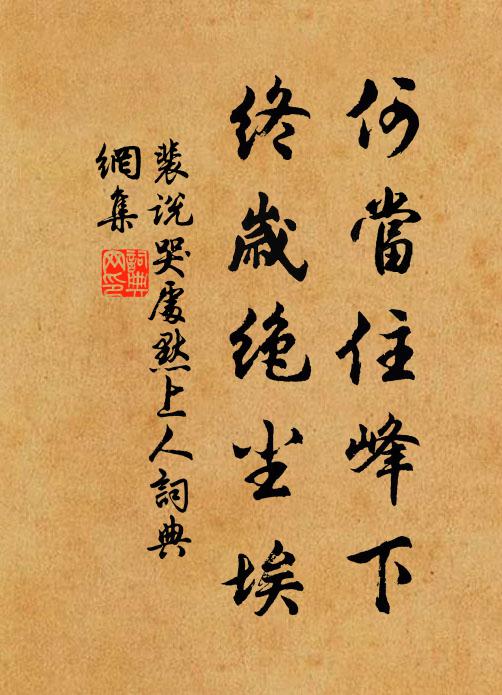 何當住峰下
終歲絶尘埃
裴說哭處默上人詞典
網集
詞典
网印